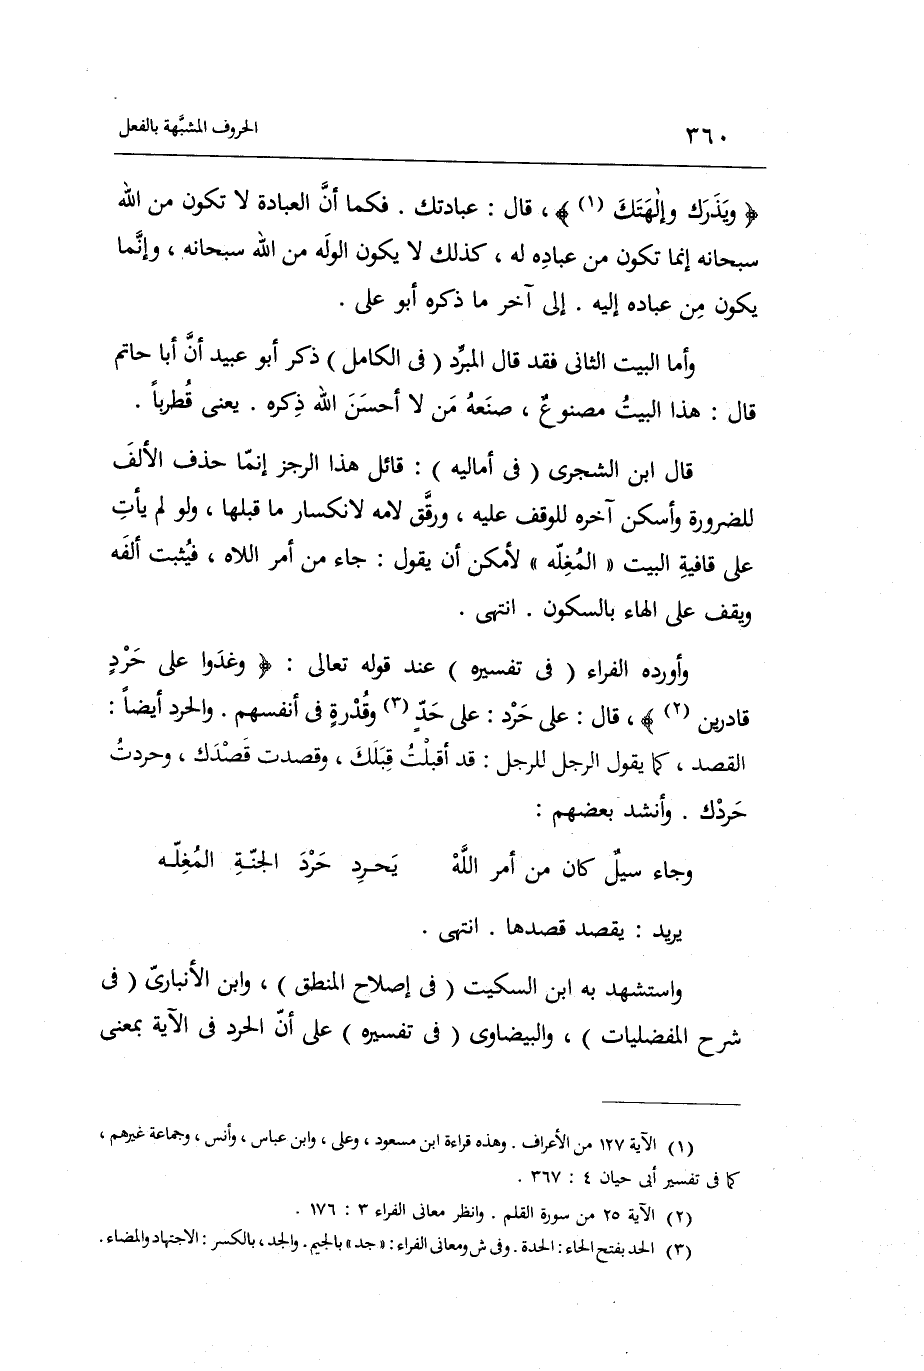 ٣٦٠ الحروف المشبَّهة بالفعل
﴿ ويَذَرَك وإلٰهَتَكَ (١) ﴾ ، قال : عبادتك . فكما أنَّ العبادة لا تكون من الله
سبحانه إنما تكون من عبادِه له ، كذلك لا يكون الولَه من الله سبحانه ، وإنَّما
يكون مِن عباده إليه . إلى آخر ما ذكره أبو على .
وأما البيت الثانى فقد قال المبرِّد ( فى الكامل ) ذكر أبو عبيد أنَّ أبا حاتم
قال : هذا البيتُ مصنوعٌ ، صنَعهُ مَن لا أحسَنَ الله ذِكره . يعنى قُطرباً .
قال ابن الشجرى ( فى أماليه ) : قائل هذا الرجز إنمّا حذف الألفَ
للضرورة وأسكن آخره للوقف عليه ، ورقَّق لامه لانكسار ما قبلها ، ولو لم يأتِ
على قافيةِ البيت « المُغِلّه » لأمكن أن يقول : جاء من أمر اللاه ، فيُثبت ألفَه
ويقف على الهاء بالسكون . انتهى .
وأورده الفراء ( فى تفسيره ) عند قوله تعالى : ﴿ وغدَوا على حَرْدٍ
قادرين (٢) ﴾ ، قال : على حَرْد : على حَدّ (٣) وقُدْرةٍ فى أنفسهم . والحرد أيضاً :
القصد ، كما يقول الرجل للرجل : قد أقبلْتُ قِبَلَكَ ، وقصدت قَصْدَك ، وحردتُ
حَردْك . وأنشد بعضهم :
وجاء سيلٌ كان من أمر اللَّهْ يَحرِد حَرْدَ الجنّةِ المُغِلّه
يريد : يقصد قصدها . انتهى .
واستشهد به ابن السكيت ( فى إصلاح المنطق ) ، وابن الأنبارىّ ( فى
شرح المفضليات ) ، والبيضاوى ( فى تفسيره ) على أنّ الحرد فى الآية بمعنى
(١) الآية ١٢٧ من الأعراف . وهذه قراءة ابن مسعود ، وعلى ، وابن عباس ، وأنس ، وجماعة غيرهم ،
كما فى تفسير أبى حيان ٤ : ٣٦٧ .
(٢) الآية ٢٥ من سورة القلم . وانظر معانى الفراء ٣ : ١٧٦ .
(٣) الحد بفتح الحاء : الحدة . وفى ش ومعانى الفراء : « جد » بالجيم . والجد ، بالكسر : الاجتهاد والمضاء .